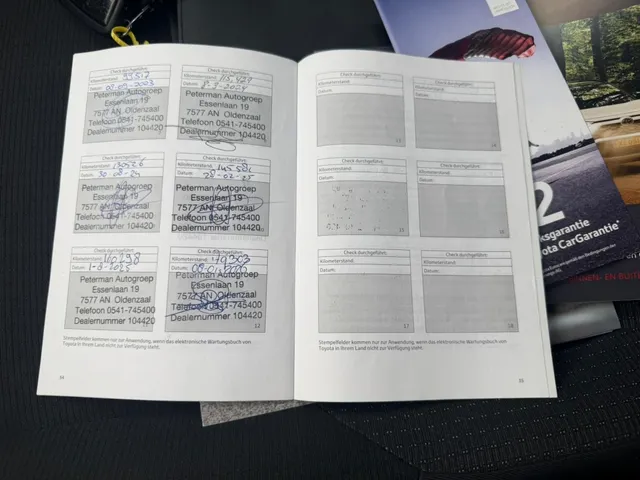 Check durchgeführt:
Kilometerstand: 99517
Datum:
Peterman Autogroep
Essenlaan 19
7577 AN Oldenzaal
Telefoon 0541-745400
Dealernummer 104420
Check durchgeführt:
Kilometerstand:
Datum:
Peterman Autogroep
Essenlaan 19
7577 AN Oldenzaal
Telefoon 0541-745400
Dealernummer 104420
Check durchgeführt:
Kilometerstand: 130526
Datum: 30-08-24
Peterman Autogroep
Essenlaan 19
7577 AN Oldenzaal
Telefoon 0541-745400
Dealernummer 104420
Check durchgeführt:
Kilometerstand:
Datum: 28-02-25
Peterman Autogroep
Essenlaan 19
7577 AN Oldenzaal
Telefoon 0541-745400
Dealernummer 104420
Check durchgeführt:
Kilometerstand: 160298
Datum: 1-8-2025
Peterman Autogroep
Essenlaan 19
7577 AN Oldenzaal
Telefoon 0541-745400
Dealernummer 104420
Check durchgeführt:
Kilometerstand: 179303
Datum:
Peterman Autogroep
Essenlaan 19
7577 AN Oldenzaal
Telefoon 0541-745400
Dealernummer 104420
12
Stempelfelder kommen nur zur Anwendung, wenn das elektronische Wartungsbuch von
Toyota in Ihrem Land nicht zur Verfügung steht.
34
Check durchgeführt:
Kilometerstand:
Datum:
13
Check durchgeführt:
Kilometerstand:
Datum:
14
Check durchgeführt:
Kilometerstand:
Datum:
15
Check durchgeführt:
Kilometerstand:
Datum:
16
Check durchgeführt:
Kilometerstand:
Datum:
17
Check durchgeführt:
Kilometerstand:
Datum:
18
Stempelfelder kommen nur zur Anwendung, wenn das elektronische Wartungsbuch von
Toyota in Ihrem Land nicht zur Verfügung steht.
35
2
ota CarGarantie*